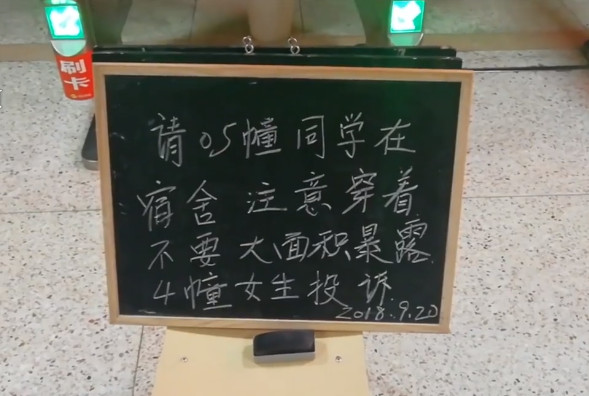 刷
卡
请05幢同学在
宿舍 注意穿着
不要 大面积暴露
4幢女生投诉
2018.9.20